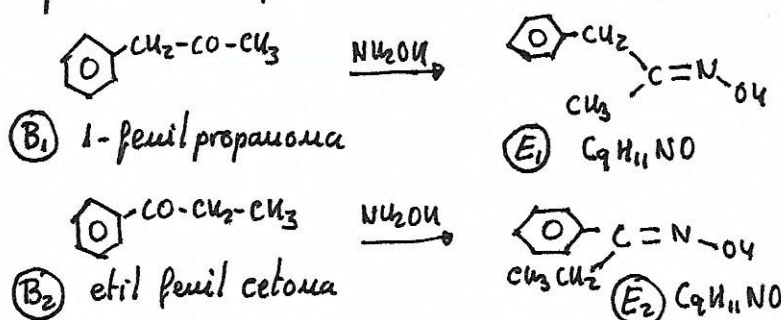 CH₂-CO-CH₃
NH₂OH
CH₂
C=N
OH
CH₃
B₁ 1-fenil propanona
E₁ C₉H₁₁NO
CO-CH₂-CH₃
NH₂OH
C=N-OH
CH₃CH₂
B₂ etil fenil cetona
E₂ C₉H₁₁NO